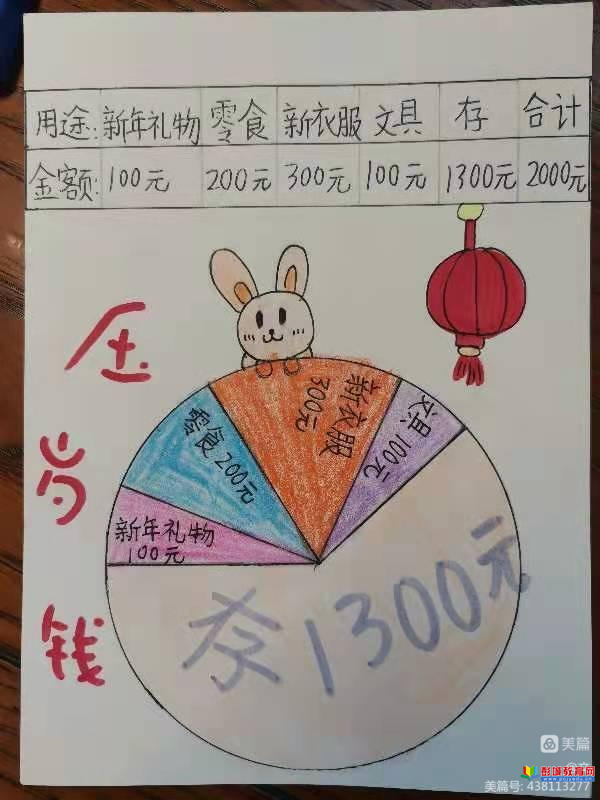 用途: 新年礼物 零食 新衣服 文具 存 合计
金额: 100元 200元 300元 100元 1300元 2000元
压
岁
钱
新年礼物
100元
零食 200元
新衣服
300元
文具 100元
存 1300元
美篇
彭城教育网
美篇号: 438113277